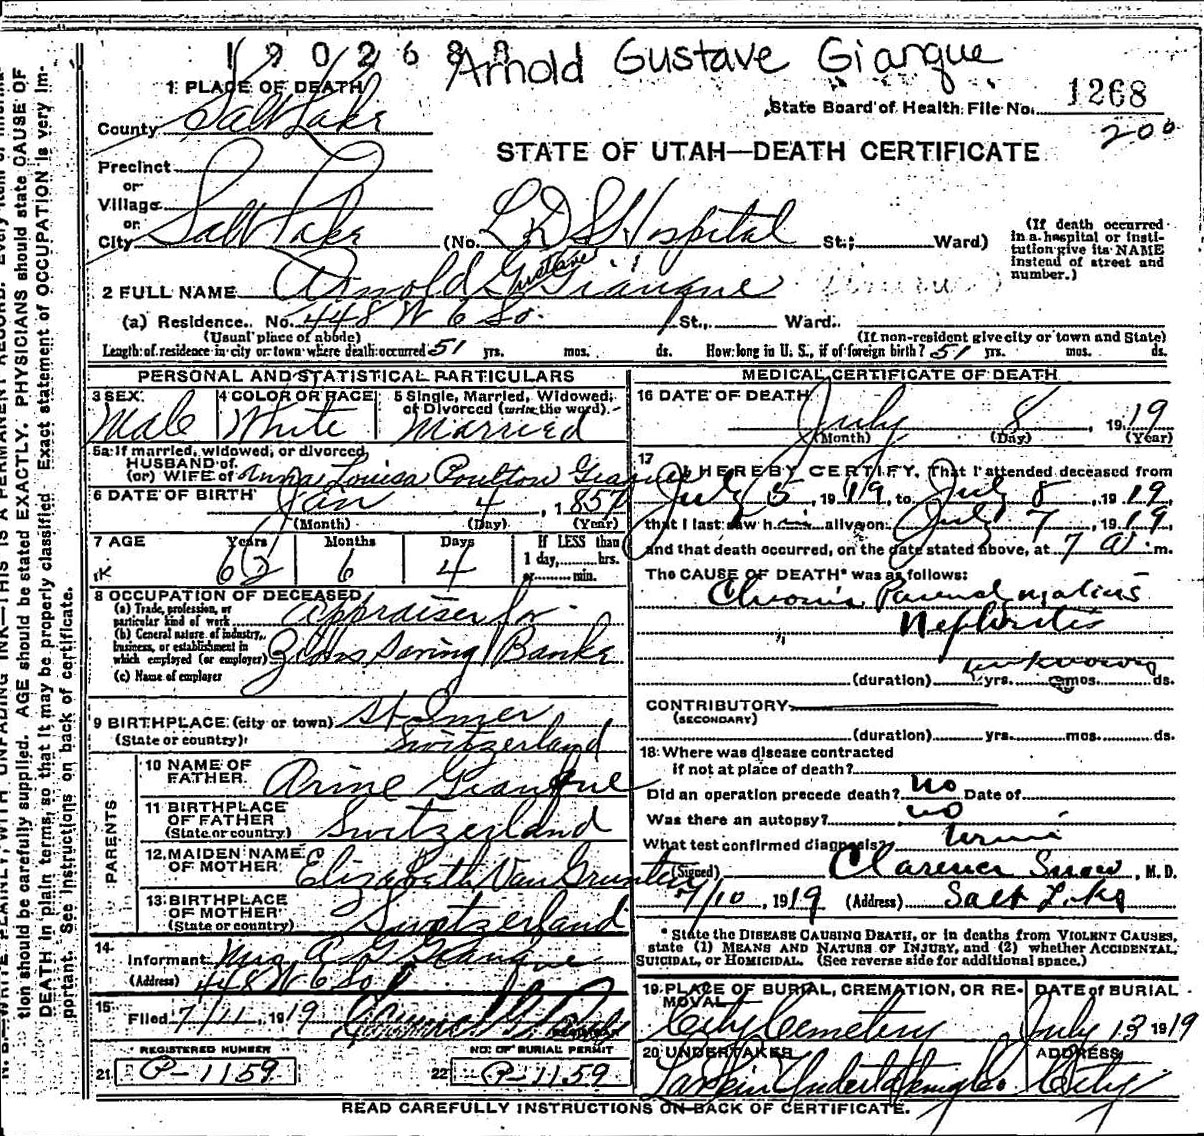 1902688
Arnold Gustave Giauque
State Board of Health File No. 1268
200
STATE OF UTAH—DEATH CERTIFICATE
1 PLACE OF DEATH
County Salt Lake
Precinct
or
Village
or
City Salt Lake (No. L D S Hospital St.; Ward)
(If death occurred in a hospital or institution give its NAME instead of street and number.)
2 FULL NAME Arnold Gustave Giauque
(a) Residence. No. 448 W 6 So. St., Ward.
(Usual place of abode) (If non-resident give city or town and State)
Length of residence in city or town where death occurred 51 yrs. mos. ds. How long in U. S., if of foreign birth? 51 yrs. mos. ds.
PERSONAL AND STATISTICAL PARTICULARS
3 SEX Male
4 COLOR OR RACE White
5 Single, Married, Widowed, or Divorced (write the word) Married
5a If married, widowed, or divorced
HUSBAND of
(or) WIFE of Anna Louisa Poulton Giauque
6 DATE OF BIRTH Jan 4, 1857
(Month) (Day) (Year)
7 AGE Years Months Days If LESS than
1 day, hrs.
62 6 4 or min.
8 OCCUPATION OF DECEASED
(a) Trade, profession, or particular kind of work Appraiser for
(b) General nature of industry, business, or establishment in which employed (or employer) Zions Saving Banke
(c) Name of employer
9 BIRTHPLACE (city or town) St Imer
(State or country) Switzerland
PARENTS
10 NAME OF FATHER Giauque
11 BIRTHPLACE OF FATHER (State or country) Switzerland
12 MAIDEN NAME OF MOTHER Elizabeth Van Grunten
13 BIRTHPLACE OF MOTHER (State or country) Switzerland
14 Informant Mrs A G Giauque
(Address) 448 W 6 So
15 Filed 7/11, 1919
REGISTRAR
REGISTERED NUMBER
21 P-1159
NO. OF BURIAL PERMIT
22 P-1159
MEDICAL CERTIFICATE OF DEATH
16 DATE OF DEATH July 8, 1919
(Month) (Day) (Year)
17 I HEREBY CERTIFY, That I attended deceased from
July 5, 1919, to July 8, 1919,
that I last saw him alive on July 7, 1919,
and that death occurred, on the date stated above, at 7 A. m.
The CAUSE OF DEATH* was as follows:
Chronic Parenchymatous
Nephritis
unknown
(duration) yrs. mos. ds.
CONTRIBUTORY
(SECONDARY)
(duration) yrs. mos. ds.
18 Where was disease contracted
if not at place of death?
Did an operation precede death? no Date of
Was there an autopsy? no
What test confirmed diagnosis? Urine
(Signed) Clarence Snow, M. D.
7/10, 1919 (Address) Salt Lake
* State the DISEASE CAUSING DEATH, or in deaths from VIOLENT CAUSES,
state (1) MEANS AND NATURE OF INJURY, and (2) whether ACCIDENTAL,
SUICIDAL, or HOMICIDAL. (See reverse side for additional space.)
19 PLACE OF BURIAL, CREMATION, OR REMOVAL City Cemetery
DATE of BURIAL July 13 1919
20 UNDERTAKER Larkin Undertaking Co
ADDRESS City
READ CAREFULLY INSTRUCTIONS ON BACK OF CERTIFICATE.
tion should be carefully supplied. AGE should be stated EXACTLY. PHYSICIANS should state CAUSE OF
DEATH in plain terms, so that it may be properly classified. Exact statement of OCCUPATION is very im-
portant. See instructions on back of certificate.